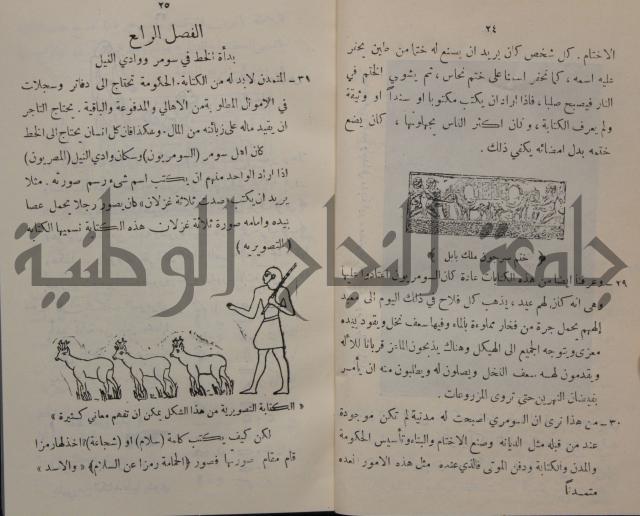 ٢٤
الاختام . كل شخص كان يريد ان يصنع له ختما من طين يحفر
عليه اسمه ، كما نحفر اسمنا على ختم نحاس ، ثم يشوي الختم في
النار فيصبح صلبا ، فاذا اراد ان يكتب مكتوبا او سنداً او وثيقة
ولم يعرف الكتابة ، وكان اكثر الناس يجهلونها ، كان يضع
ختمه بدل امضائه يكفي ذلك .
﴿ ختم سرجون ملك بابل ﴾
٢٩ — وعرفنا ايضا من هذه الكتابات عادة كان السومريون اعتادوا عليها
وهى انه كان لهم عيد ، يذهب كل فلاح في ذلك اليوم الى معبد
إلههم يحمل جرة من فخار مملوءة بالماء وفيها سعف نخل ويقود بيده
معزى ويتوجه الجميع الى الهيكل وهناك يذبحون الماعز قربانا للاله
ويقدمون لهسعف النخل ويصلون له ويطلبون منه ان يأمر
بفيضان النهرين حتى تروى المزروعات .
٣٠ — من هذا نرى ان السومري اصبحت له مدنية لم تكن موجودة
عند من قبله مثل الديانه وصنع الاختام والبناء وتأسيس الحكومة
والمدن والكتابة ودفن الموتى فالذي عنده مثل هذه الامور نعده
متمدناً
٢٥
الفصل الرابع
بدأة الخط في سومر ووادي النيل
٣١ — المتمدن لابد له من الكتابة . الحكومة تحتاج الى دفاتر وسجلات
في الاموال المطلوبة من الاهالي والمدفوعة والباقية . يحتاج التاجر
ان يقيد ماله على زبائنه من المال . وهكذا فان كل انسان يحتاج الى الخط
كان اهل سومر (السومريون) وسكان وادي النيل (المصريون)
اذا اراد الواحد منهم ان يكتب اسم شيء رسم صورته . مثلا
يريد ان يكتب « رعيت ثلاثة غزلان » كان يصور رجلا يحمل عصا
بيده وامامه صورة ثلاثة غزلان هذه الكتابة نسميها الكتابة
(التصويريه)
« الكتابة التصويرية من هذا الشكل يمكن ان تفهم معاني كثيرة »
لكن كيف يكتب كلمة (سلام) او (شجاعة)؟ اخذ لها رمزا
قام مقام صورتها فصور (الحمامة رمزا عن السلام) « والاسد »
جامعة النجاح الوطنية